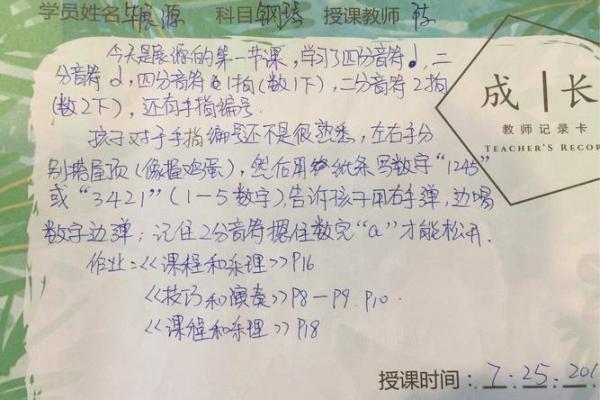 学员姓名 牛宸源 科目 钢琴 授课教师 陈
今天是宸源的第一节课,学习了四分音符♩,二
分音符𝅗𝅥,四分音符1拍(数1下),二分音符2拍
(数2下),还有手指编号.
孩子对于手指编号还不是很熟悉,左右手分
别搭屋顶(像握鸡蛋),然后用纸条写数字“1245”
或“3421”(1-5数字),告诉孩子用右手弹,边唱
数字边弹;记住2分音符摁住数完“2”才能松开.
作业:<<课程和乐理>>P16
<<技巧和演奏>>P8-P9. P10.
<<课程和乐理>>P18
成长
教师记录卡
TEACHER'S RECOR
授课时间:7.25.201